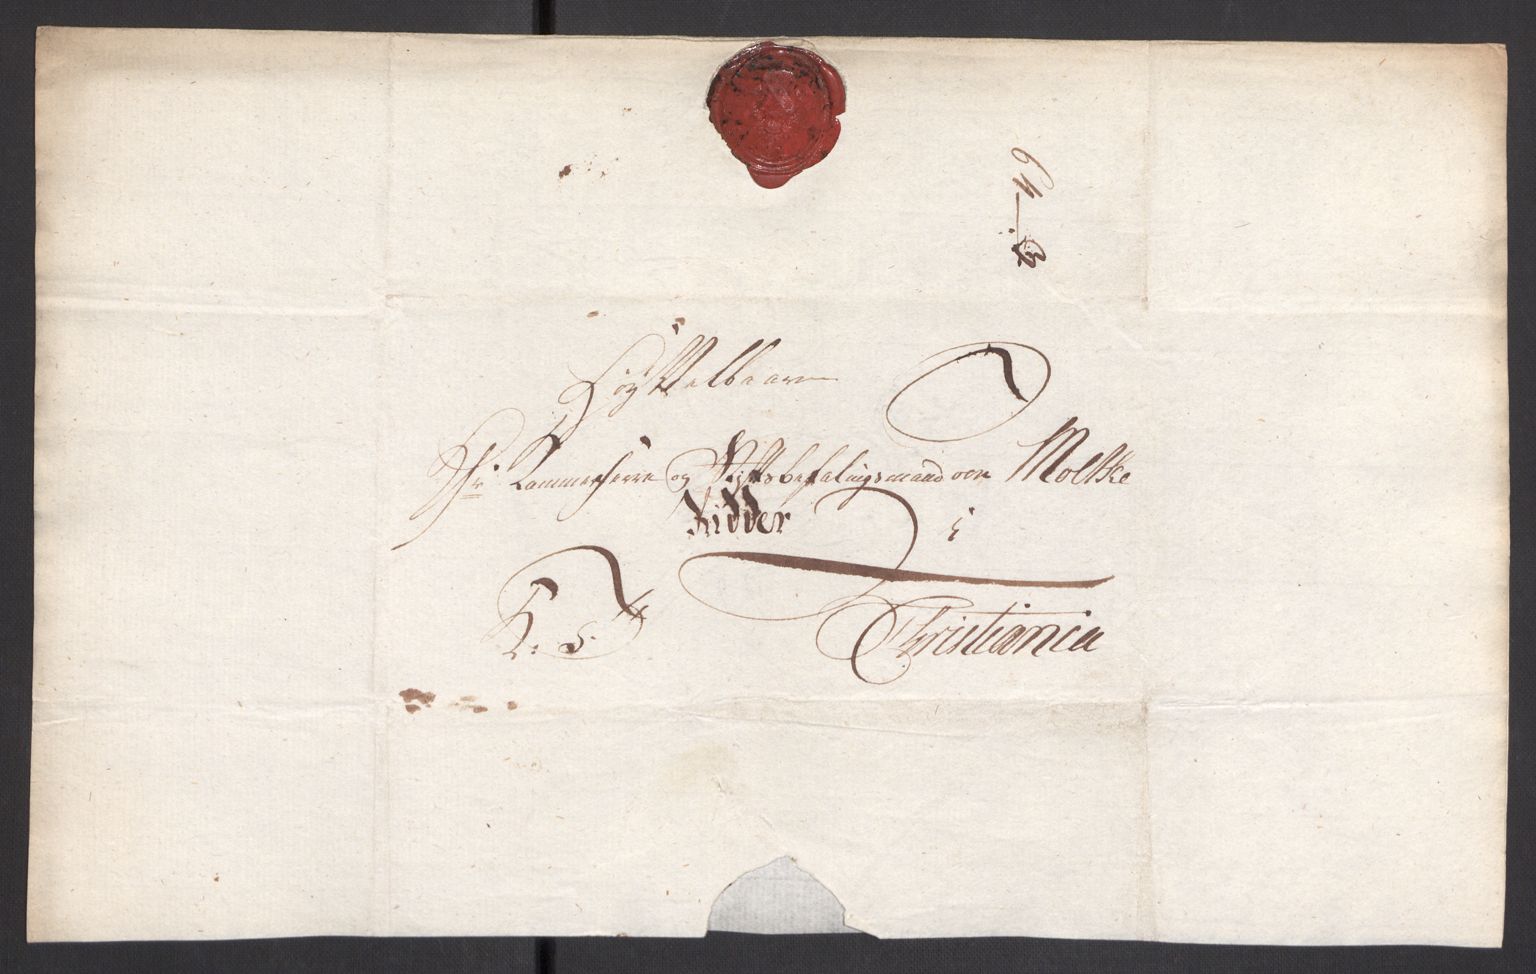 Høy Velbaarne
Hr: Kammerherre og Stiftsbefalingsmand von Moltke
Ridder
i
K: S:
Christiania